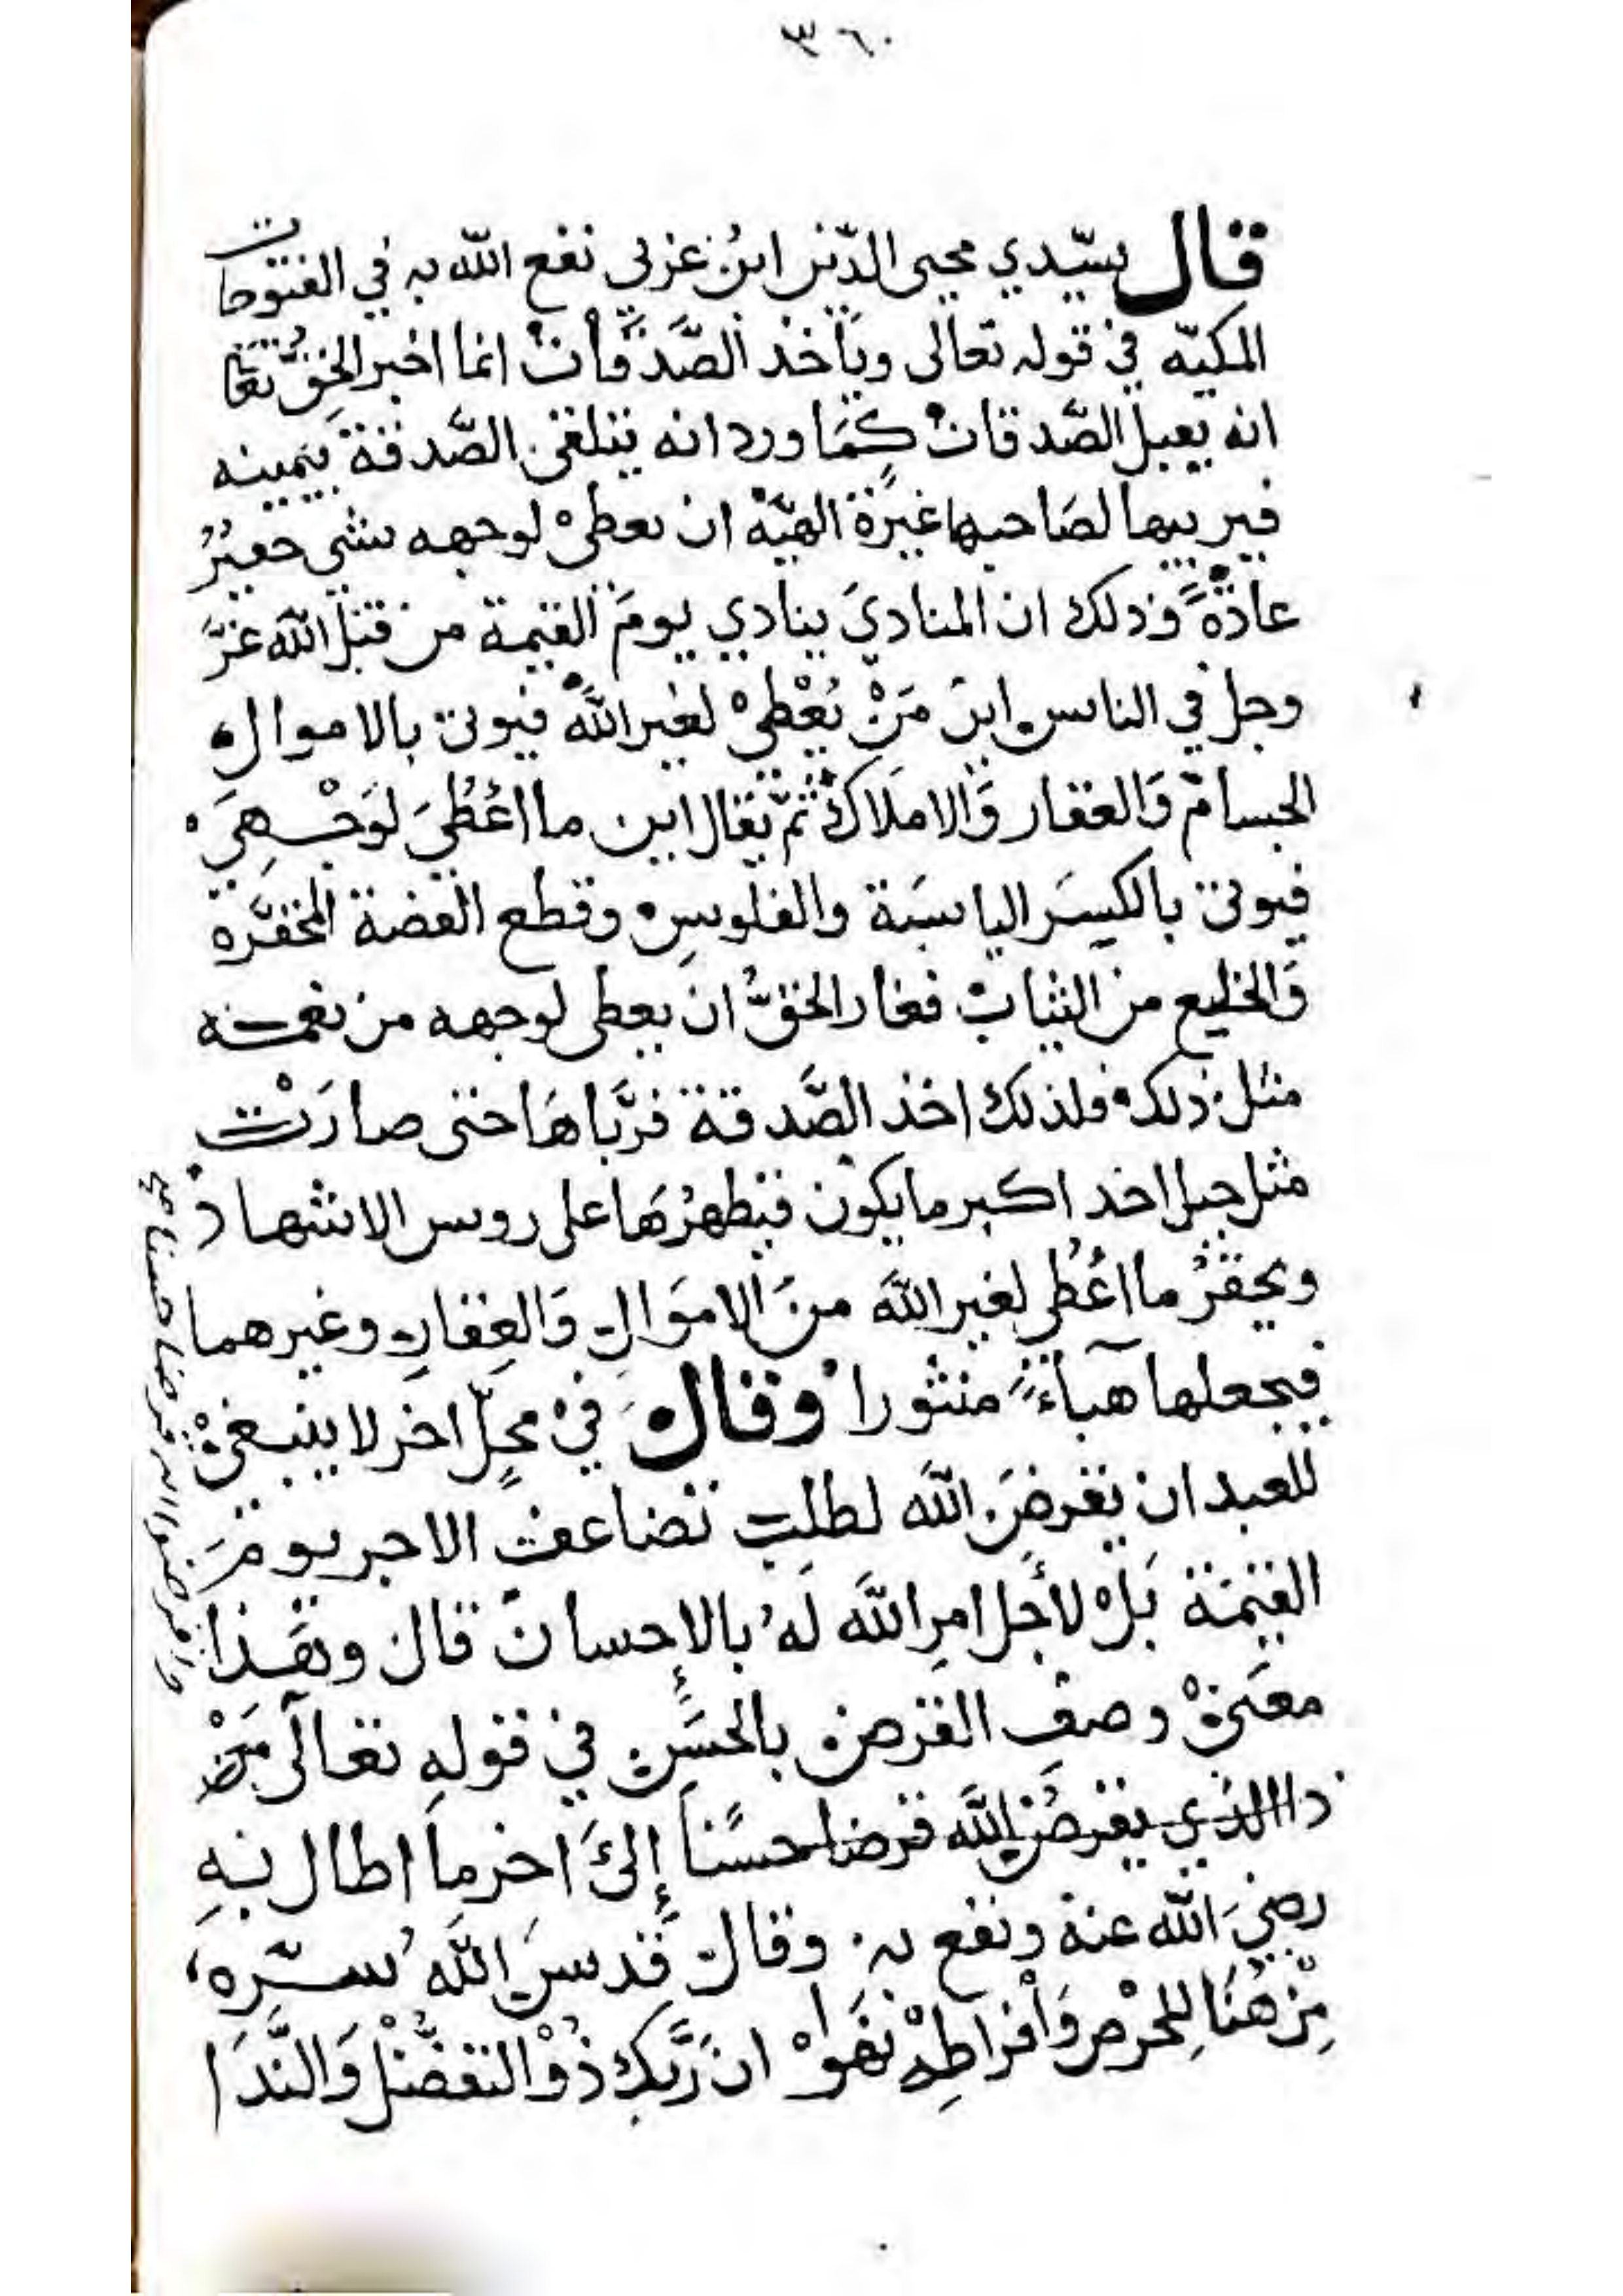 ٣٦٠
قال سيّدي محيى الدّين ابن عربي نفع الله به في الفتوحات
المكيّه في قوله تعالى وياخذ الصَّدَقات انما اخبر الحقُّ تعا
انه يقبل الصّدقات كما ورد انه يتلقى الصّدقة بيمينه
فيربيها لصَاحبها غيرة الهيّة ان يعطى لوجهه شي حقيرٌ
عادةً وذلك ان المناديَ ينادي يومَ القيمة من قبل الله عزَّ
وجل في الناس اين مَنْ يُعْطِي لغير الله فيوتى بالاموال
الجسام وَالعقار وَالاملاك ثمّ يقال اين ما اعُطِيَ لوَجْهِيَ
فيوتى بالكِسَر اليابسَة والفلوسِ وقطع الفضة المحقّره
وَالخليع من الثياب فغار الحقُّ ان يعطى لوجهه من نعمته
مثل ذلك فلذلك اخذ الصَّدقة فربَّاهَا حتى صارَتْ
مثل جبل احد اكبر ما يكون فيظهرُهَا على روس الاشهاد
ويحقرُ ما اعُطي لغير الله منَ الاموَالِ وَالعقارِ وغيرهما
فيجعلها هبآءً منثورا وقال في محلٍّ اخر لا ينبغي
للعبد ان يقرضَ الله لطلبِ تضاعف الاجر يومَ
القيمة بَلْ لأجل امرِ الله لَهُ بالإحسان قال وهَذا
معنى وصفِ القرض بالحسَنِ في قولهِ تعالى مَنْ
ذا الذي يقرضُ الله قرضا حسَنًا إلىَ اخر ما اطال بهِ
رضيَ الله عنه ونفع به وقال قدسَ الله سرّه
مِنْ هُنَا لِلحْرصِ وَأفراطِهْ نفَوْا ان رَبَّك ذُوْ التفضُّلْ وَالنَّدَا
واقرضوا الله قرضا حسنا صح